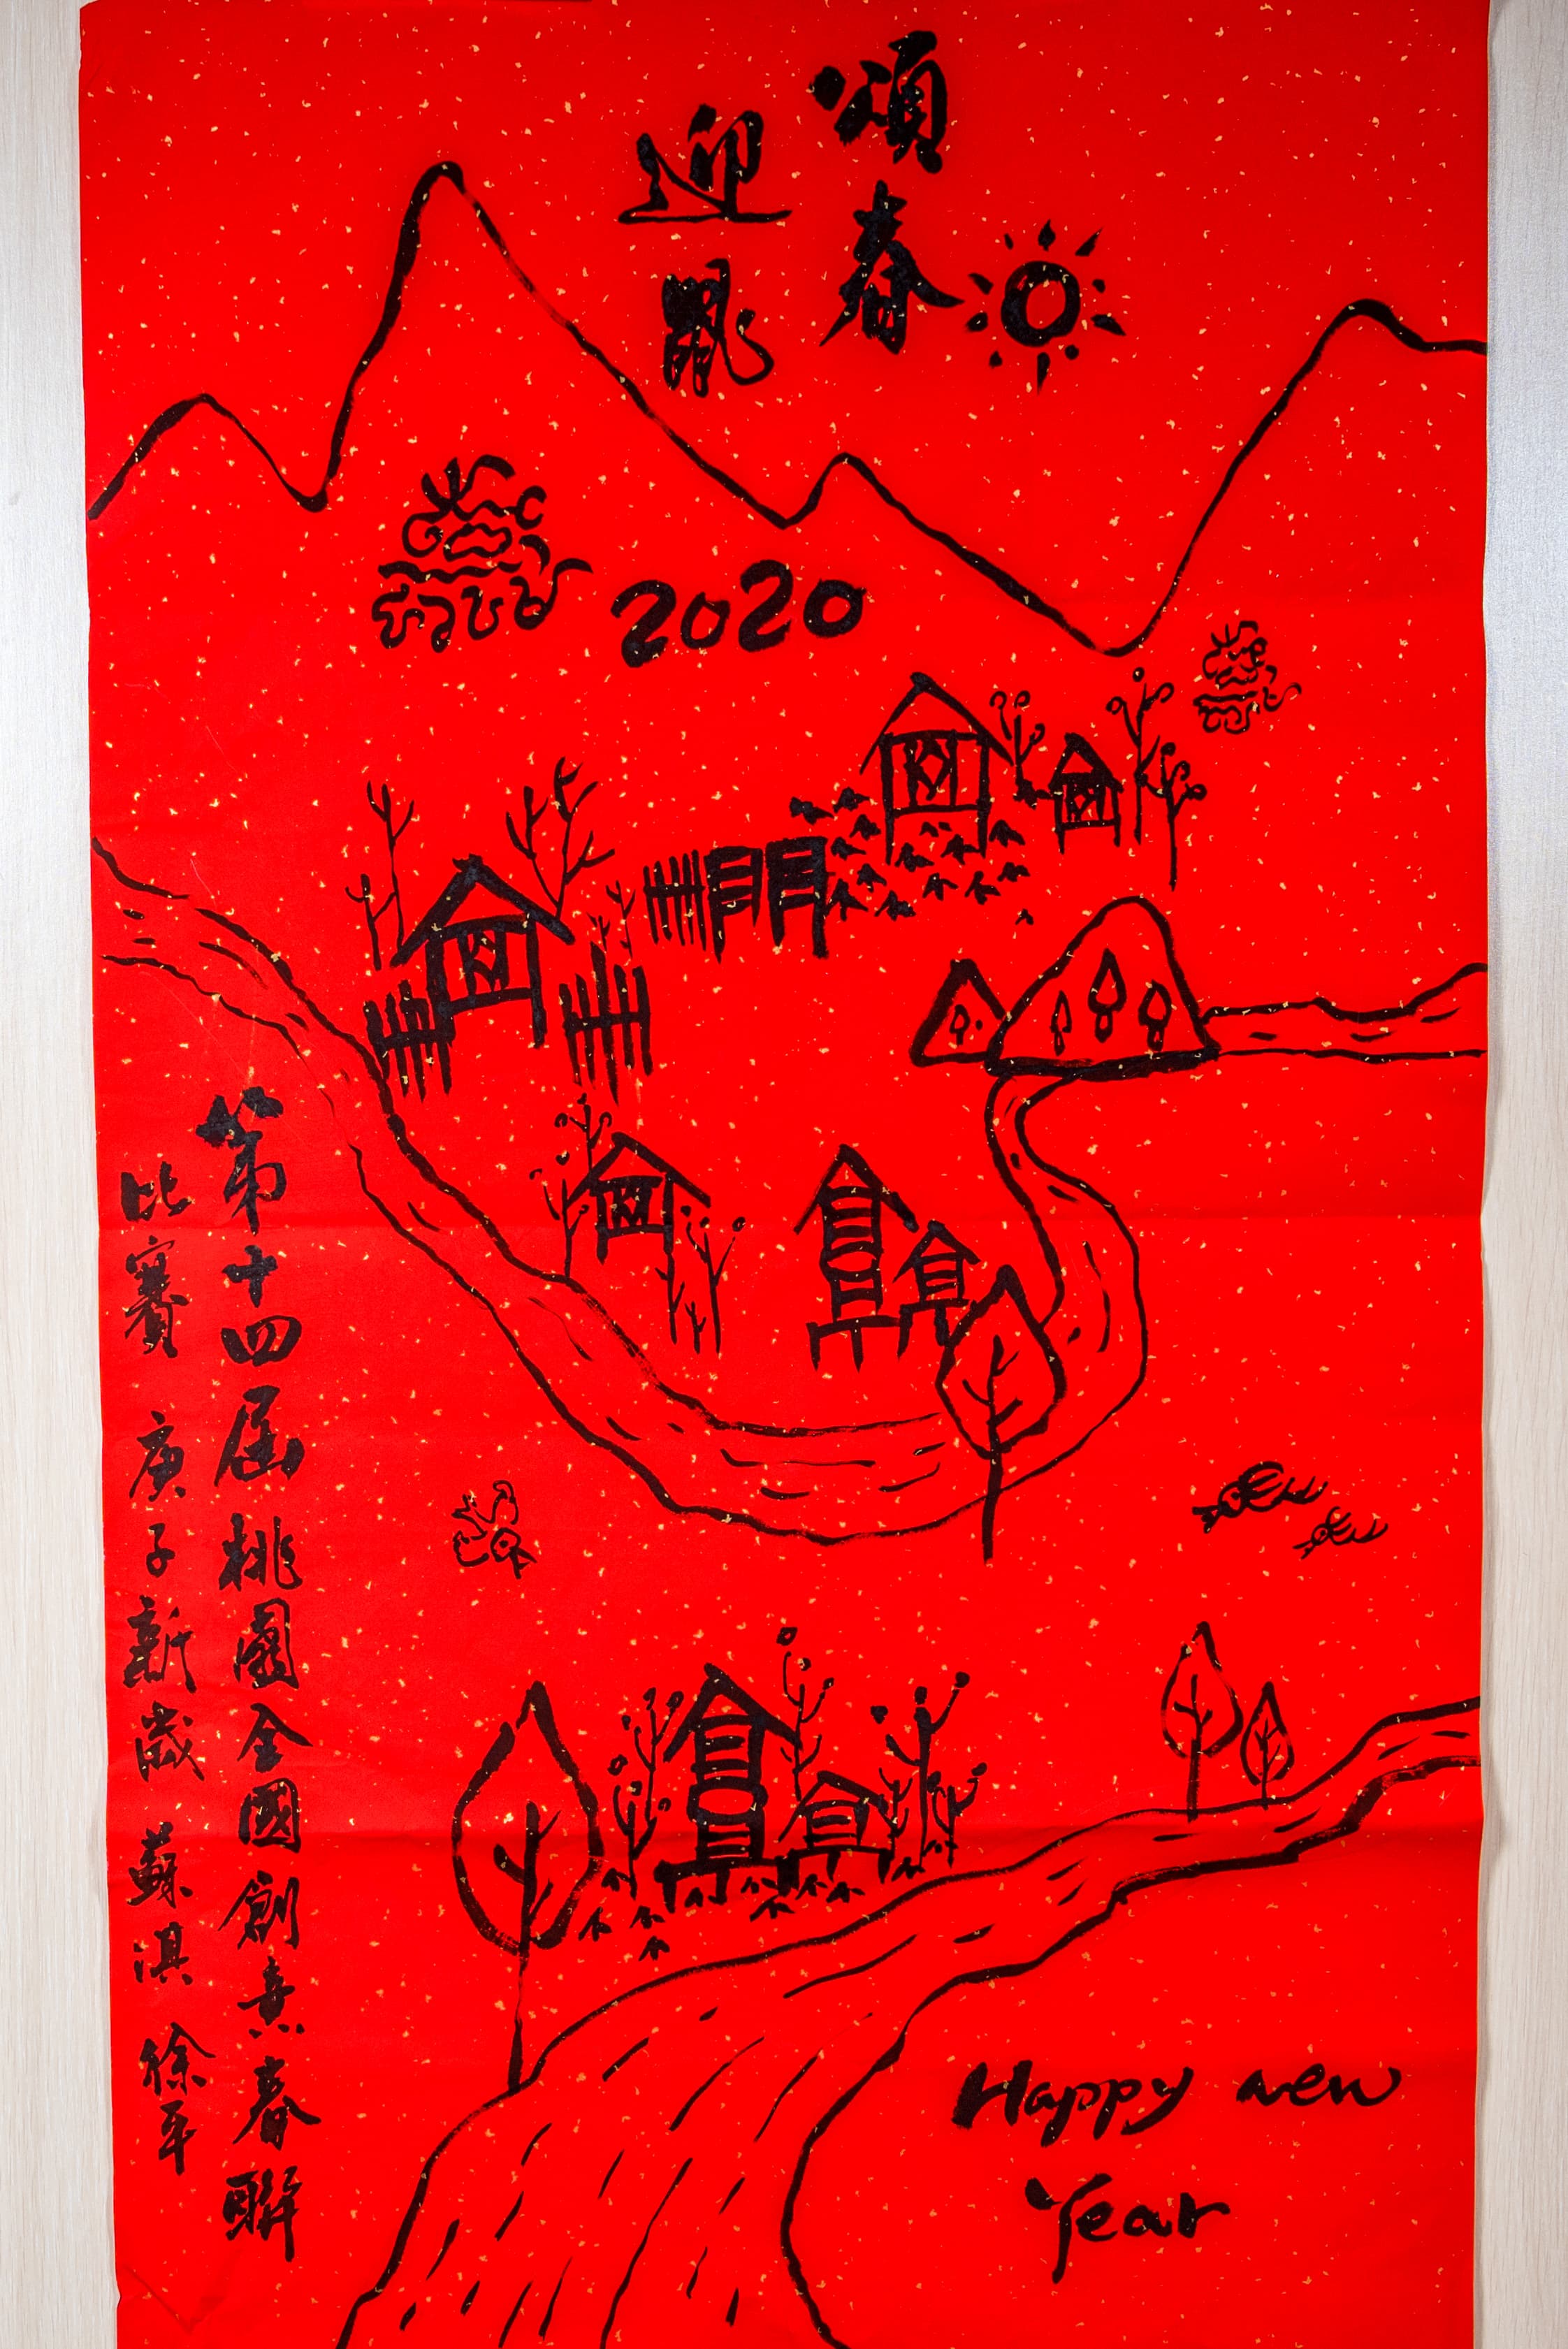 頌春
迎鼠
2020
第十四屆桃園全國創意春聯
比賽 庚子新歲 蘇淇 徐平
Happy new
Year